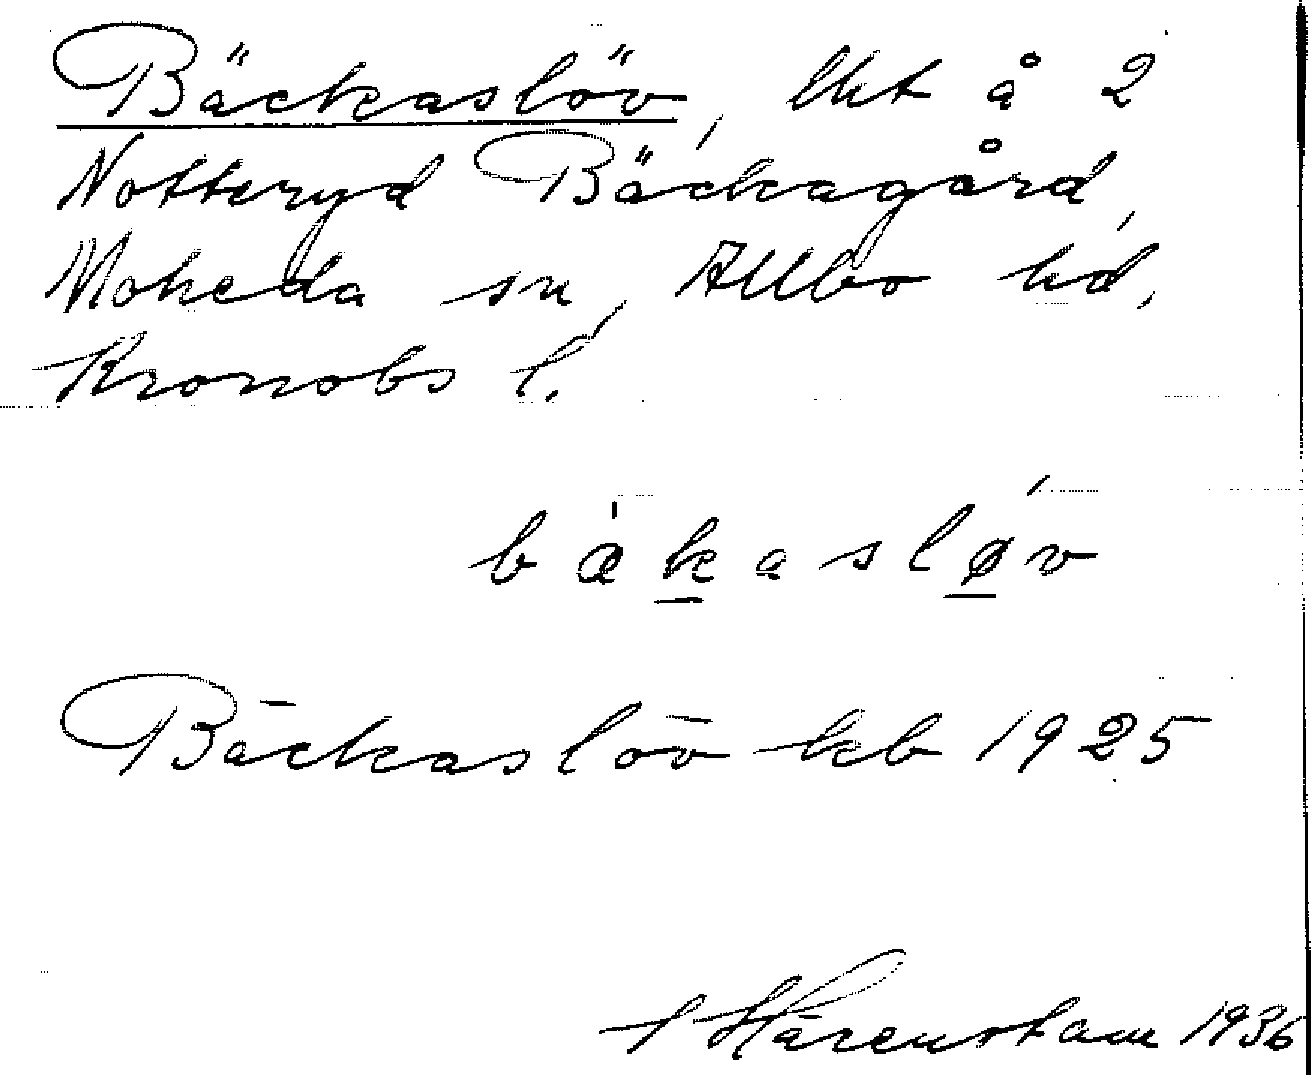 Bäckaslöv, lht å 2
Notteryd Bäckagård,
Moheda sn, Allbo hd,
Kronobs l.
bäkasløv
Bäckaslöv kb 1925
Härenstam 1936